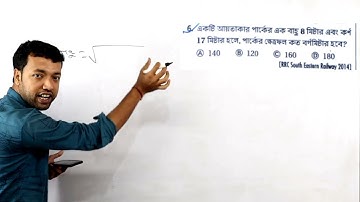 একটি আয়তাকার পার্কের এক বাহু 8 মিটার এবং কর্ণ
17 মিটার হলে, পার্কের ক্ষেত্রফল কত বর্গমিটার হবে?
Ⓐ 140 Ⓑ 120 Ⓒ 160 Ⓓ 180
[RRC South Eastern Railway 2014]
= √